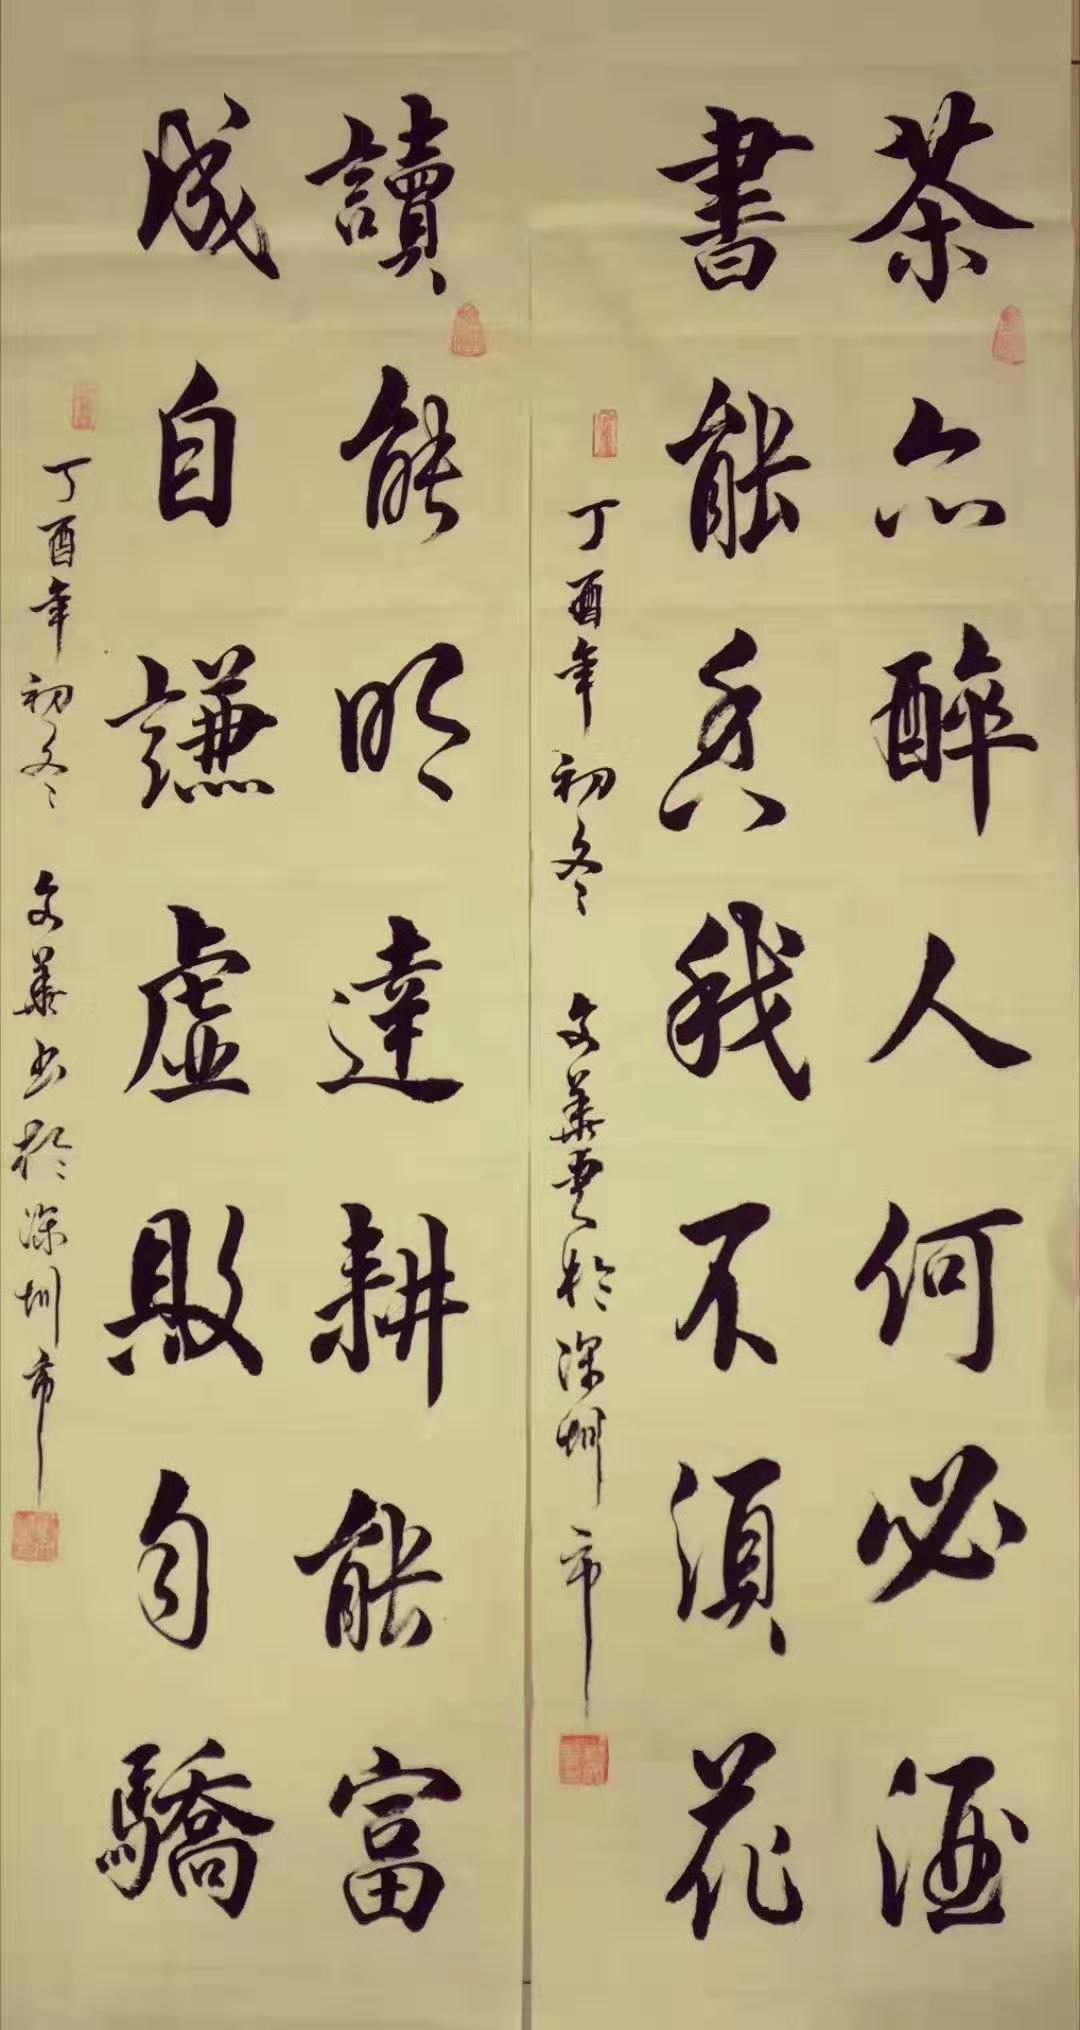 茶亦醉人何必酒
書能香我不須花
丁酉年初冬 文華書於深圳市
讀能明達耕能富
成自謙虛敗自驕
丁酉年初冬 文華书於深圳市